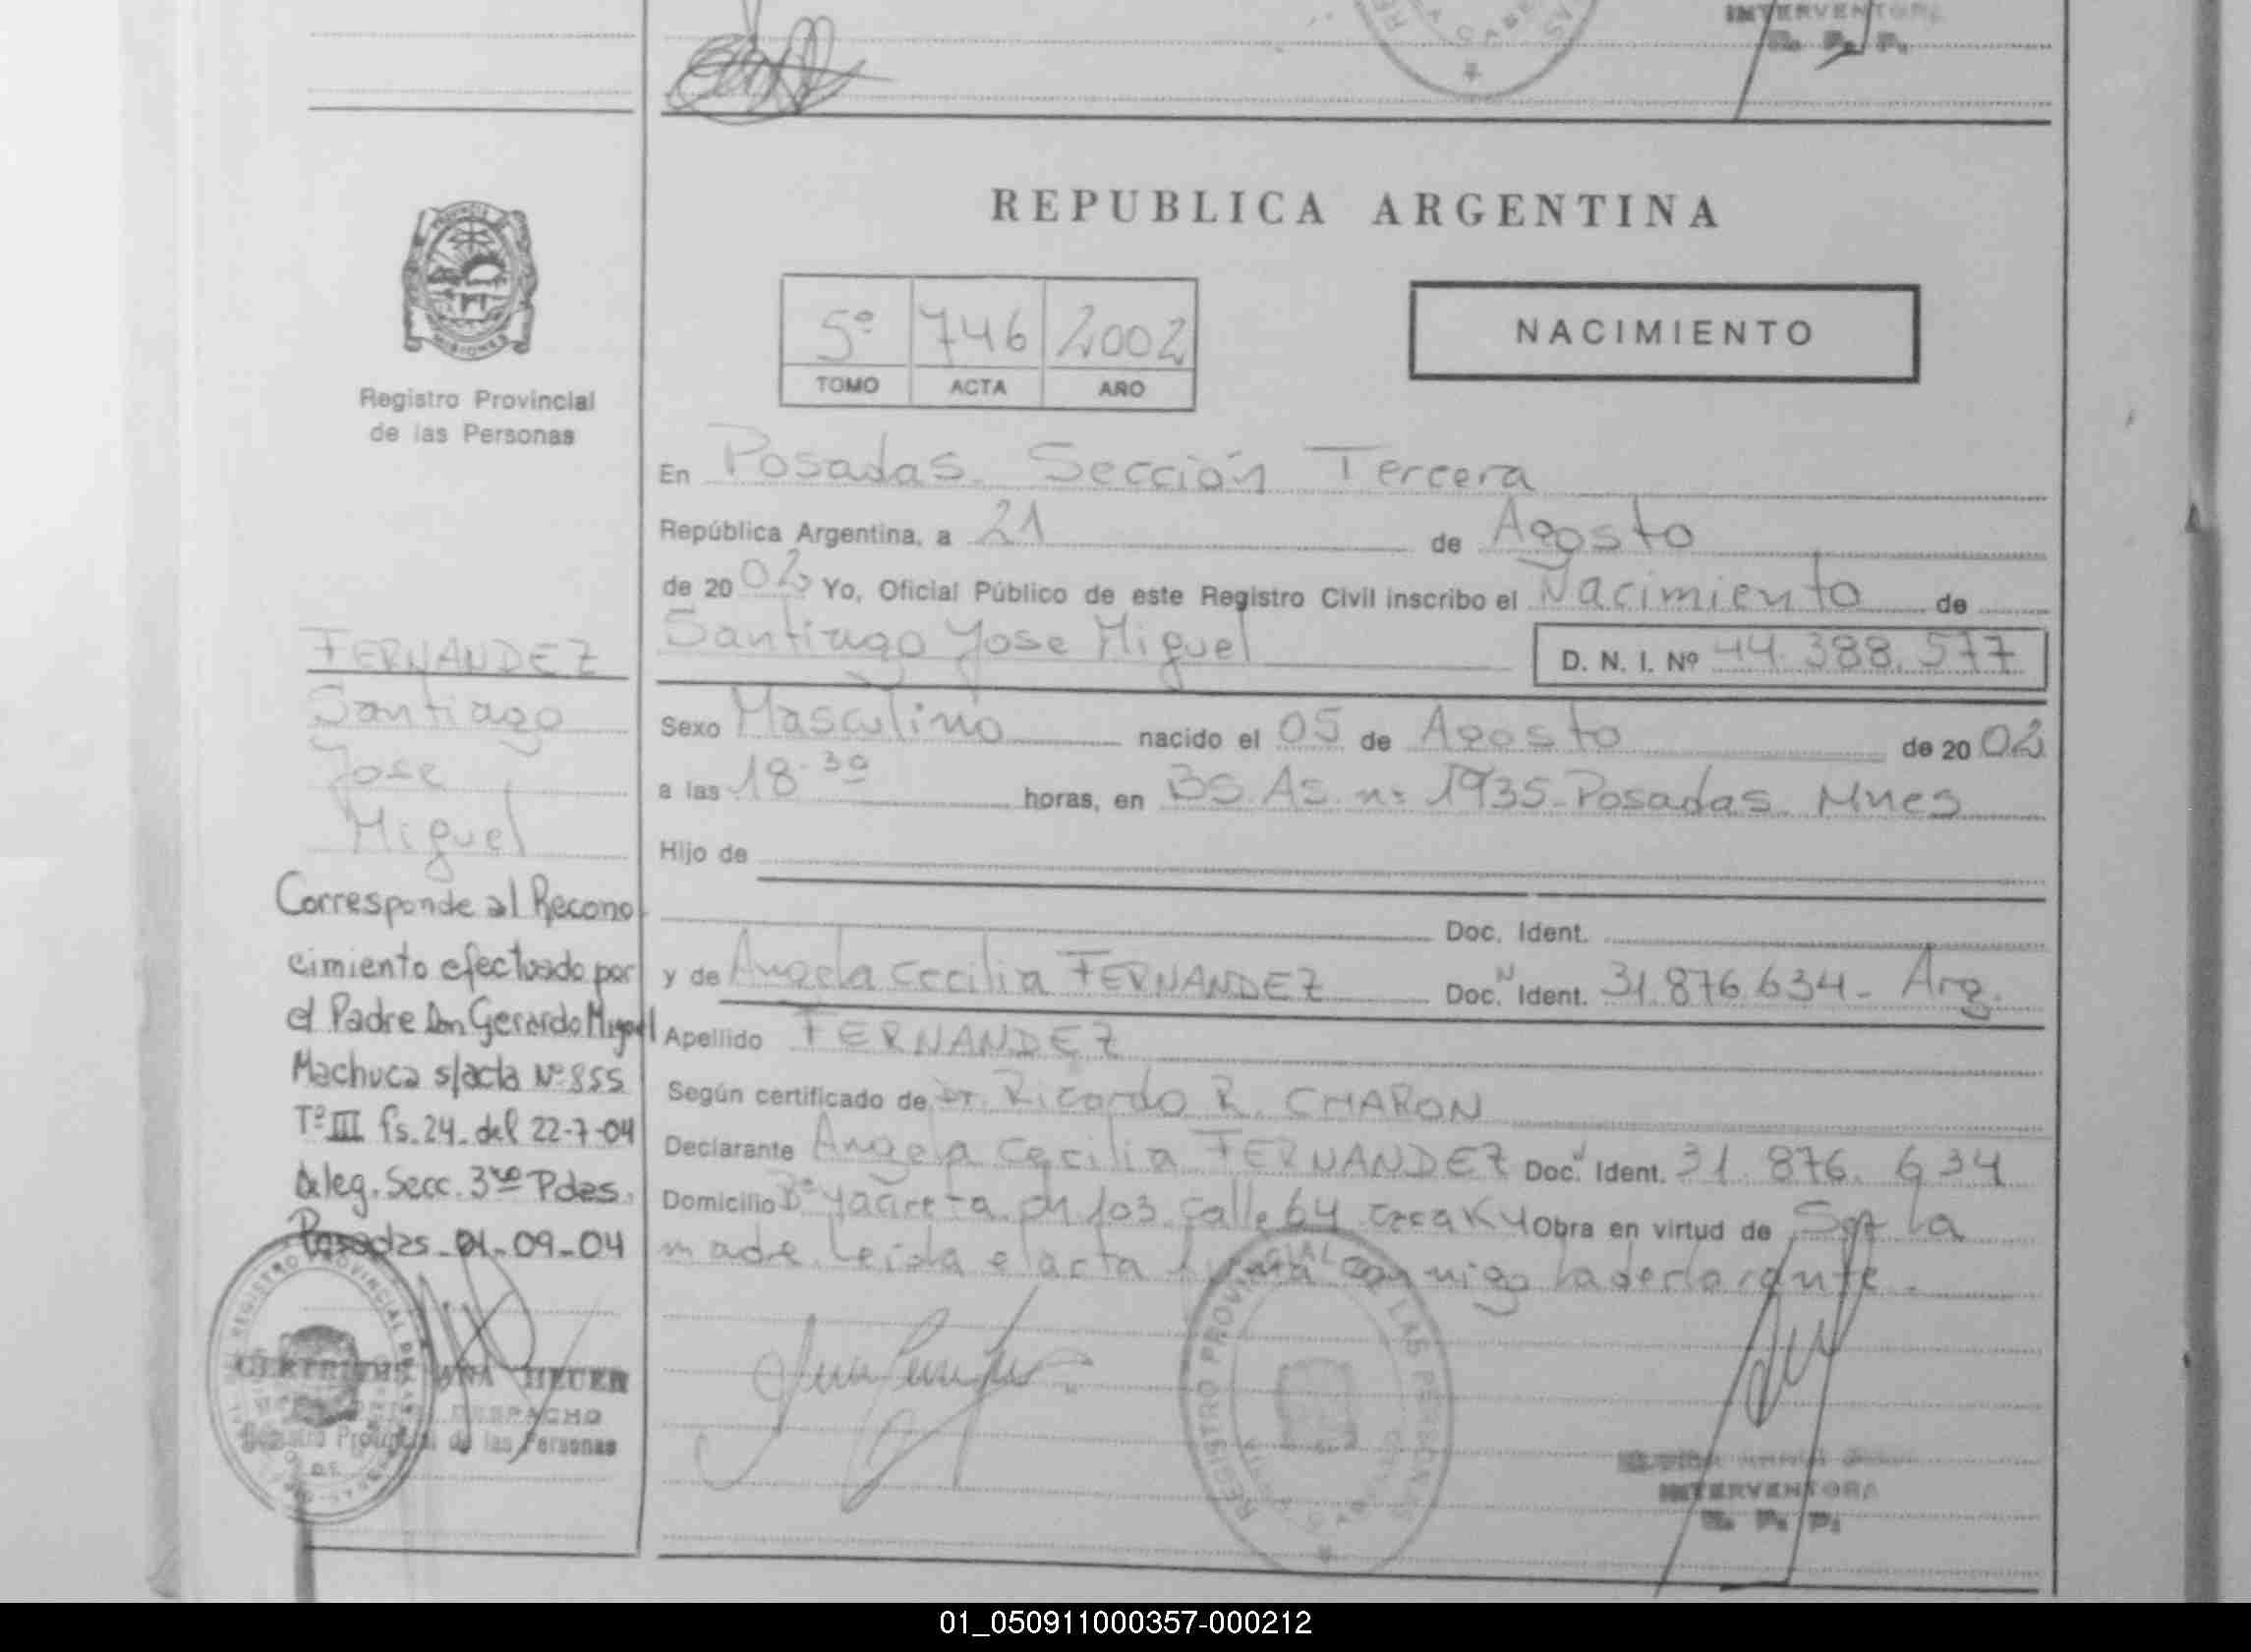 INTERVENTORA
R. P. P.
REPUBLICA ARGENTINA
PROVINCIA
MISIONES
Registro Provincial
de las Personas
5º 746 2002
TOMO ACTA AÑO
NACIMIENTO
En Posadas Sección Tercera
República Argentina, a 21 de Agosto
de 20 02 Yo, Oficial Público de este Registro Civil inscribo el Nacimiento de
Santiago Jose Miguel D. N. I. Nº 44.388.577
Sexo Masculino nacido el 05 de Agosto de 20 02
a las 18.30 horas, en BS. AS. nº 1935 Posadas Mnes
Hijo de
Doc. Ident.
y de Angela Cecilia FERNANDEZ Doc. N Ident. 31.876.634 - Arg.
Apellido FERNANDEZ
Según certificado de Dr. Ricardo R. CHARON
Declarante Angela Cecilia FERNANDEZ Doc. Ident. 31.876.634
Domicilio Bº Yacireta ch 103 calle 64 casa K4 Obra en virtud de Ser la
madre. Leida el acta firma conmigo la declarante.
FERNANDEZ
Santiago
Jose
Miguel
Corresponde al Recono
cimiento efectuado por
el Padre Don Gerardo Miguel
Machuca s/acta Nº 855
Tº III fs. 24 - del 22-7-04
Deleg. Secc. 3ra Pdas.
Posadas - 01-09-04
DESPACHO
Registro Provincial de las Personas
REGISTRO PROVINCIAL DE LAS PERSONAS
INTERVENTORA
R. P. P.
01_050911000357-000212